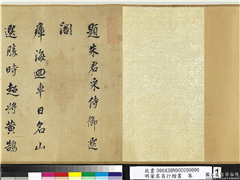 題朱君采侍御逰
涸
庫海迴車日名山
選勝時超將黃鵠
故書000430600200000
明董其昌行楷書 卷